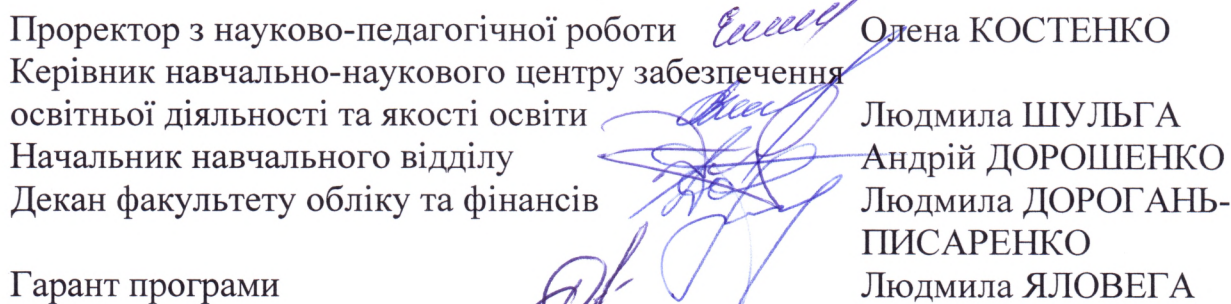 Проректор з науково-педагогічної роботи Олена КОСТЕНКО
Керівник навчально-наукового центру забезпечення
освітньої діяльності та якості освіти Людмила ШУЛЬГА
Начальник навчального відділу Андрій ДОРОШЕНКО
Декан факультету обліку та фінансів Людмила ДОРОГАНЬ-
ПИСАРЕНКО
Гарант програми Людмила ЯЛОВЕГА